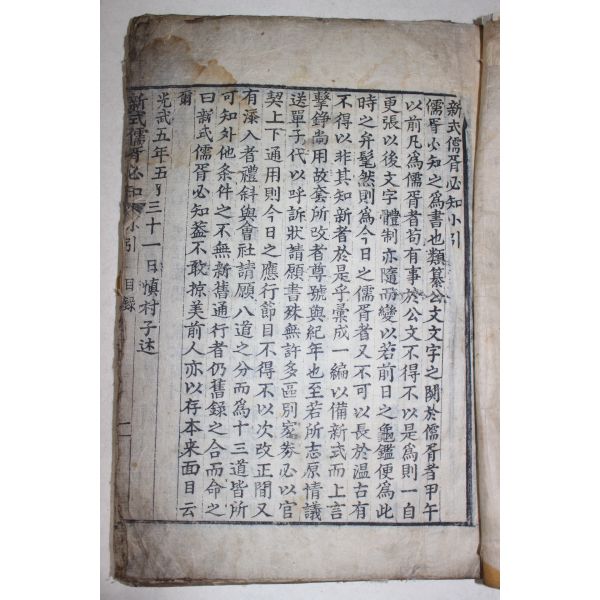 新式儒胥必知小引
儒胥必知之爲書也類纂公文文字之關於儒胥者甲午
以前凡爲儒胥者苟有事於公文不得不以是爲則一自
更張以後文字體制亦隨而變以若前日之龜鑑便爲此
時之弁髦然則爲今日之儒胥者又不可以長於温古有
不得以非其知新者於是乎彙成一編以備新式而上言
擊錚尚用故套所改者尊號與紀年也至若所志原情議
送單子代以呼訴狀請願書殊無許多區別家劵必以官
契上下通用則今日之應行節目不得不以次改正間又
有深入者禮斜與會社請願八道之分而爲十三道皆所
可知外他條件之不無新舊通行者仍舊錄之合而命之
曰新式儒胥必知葢不敢掠美前人亦以存本来面目云
爾
光武五年五月三十一日愼村子述
新式儒胥必知 小引 目録 一